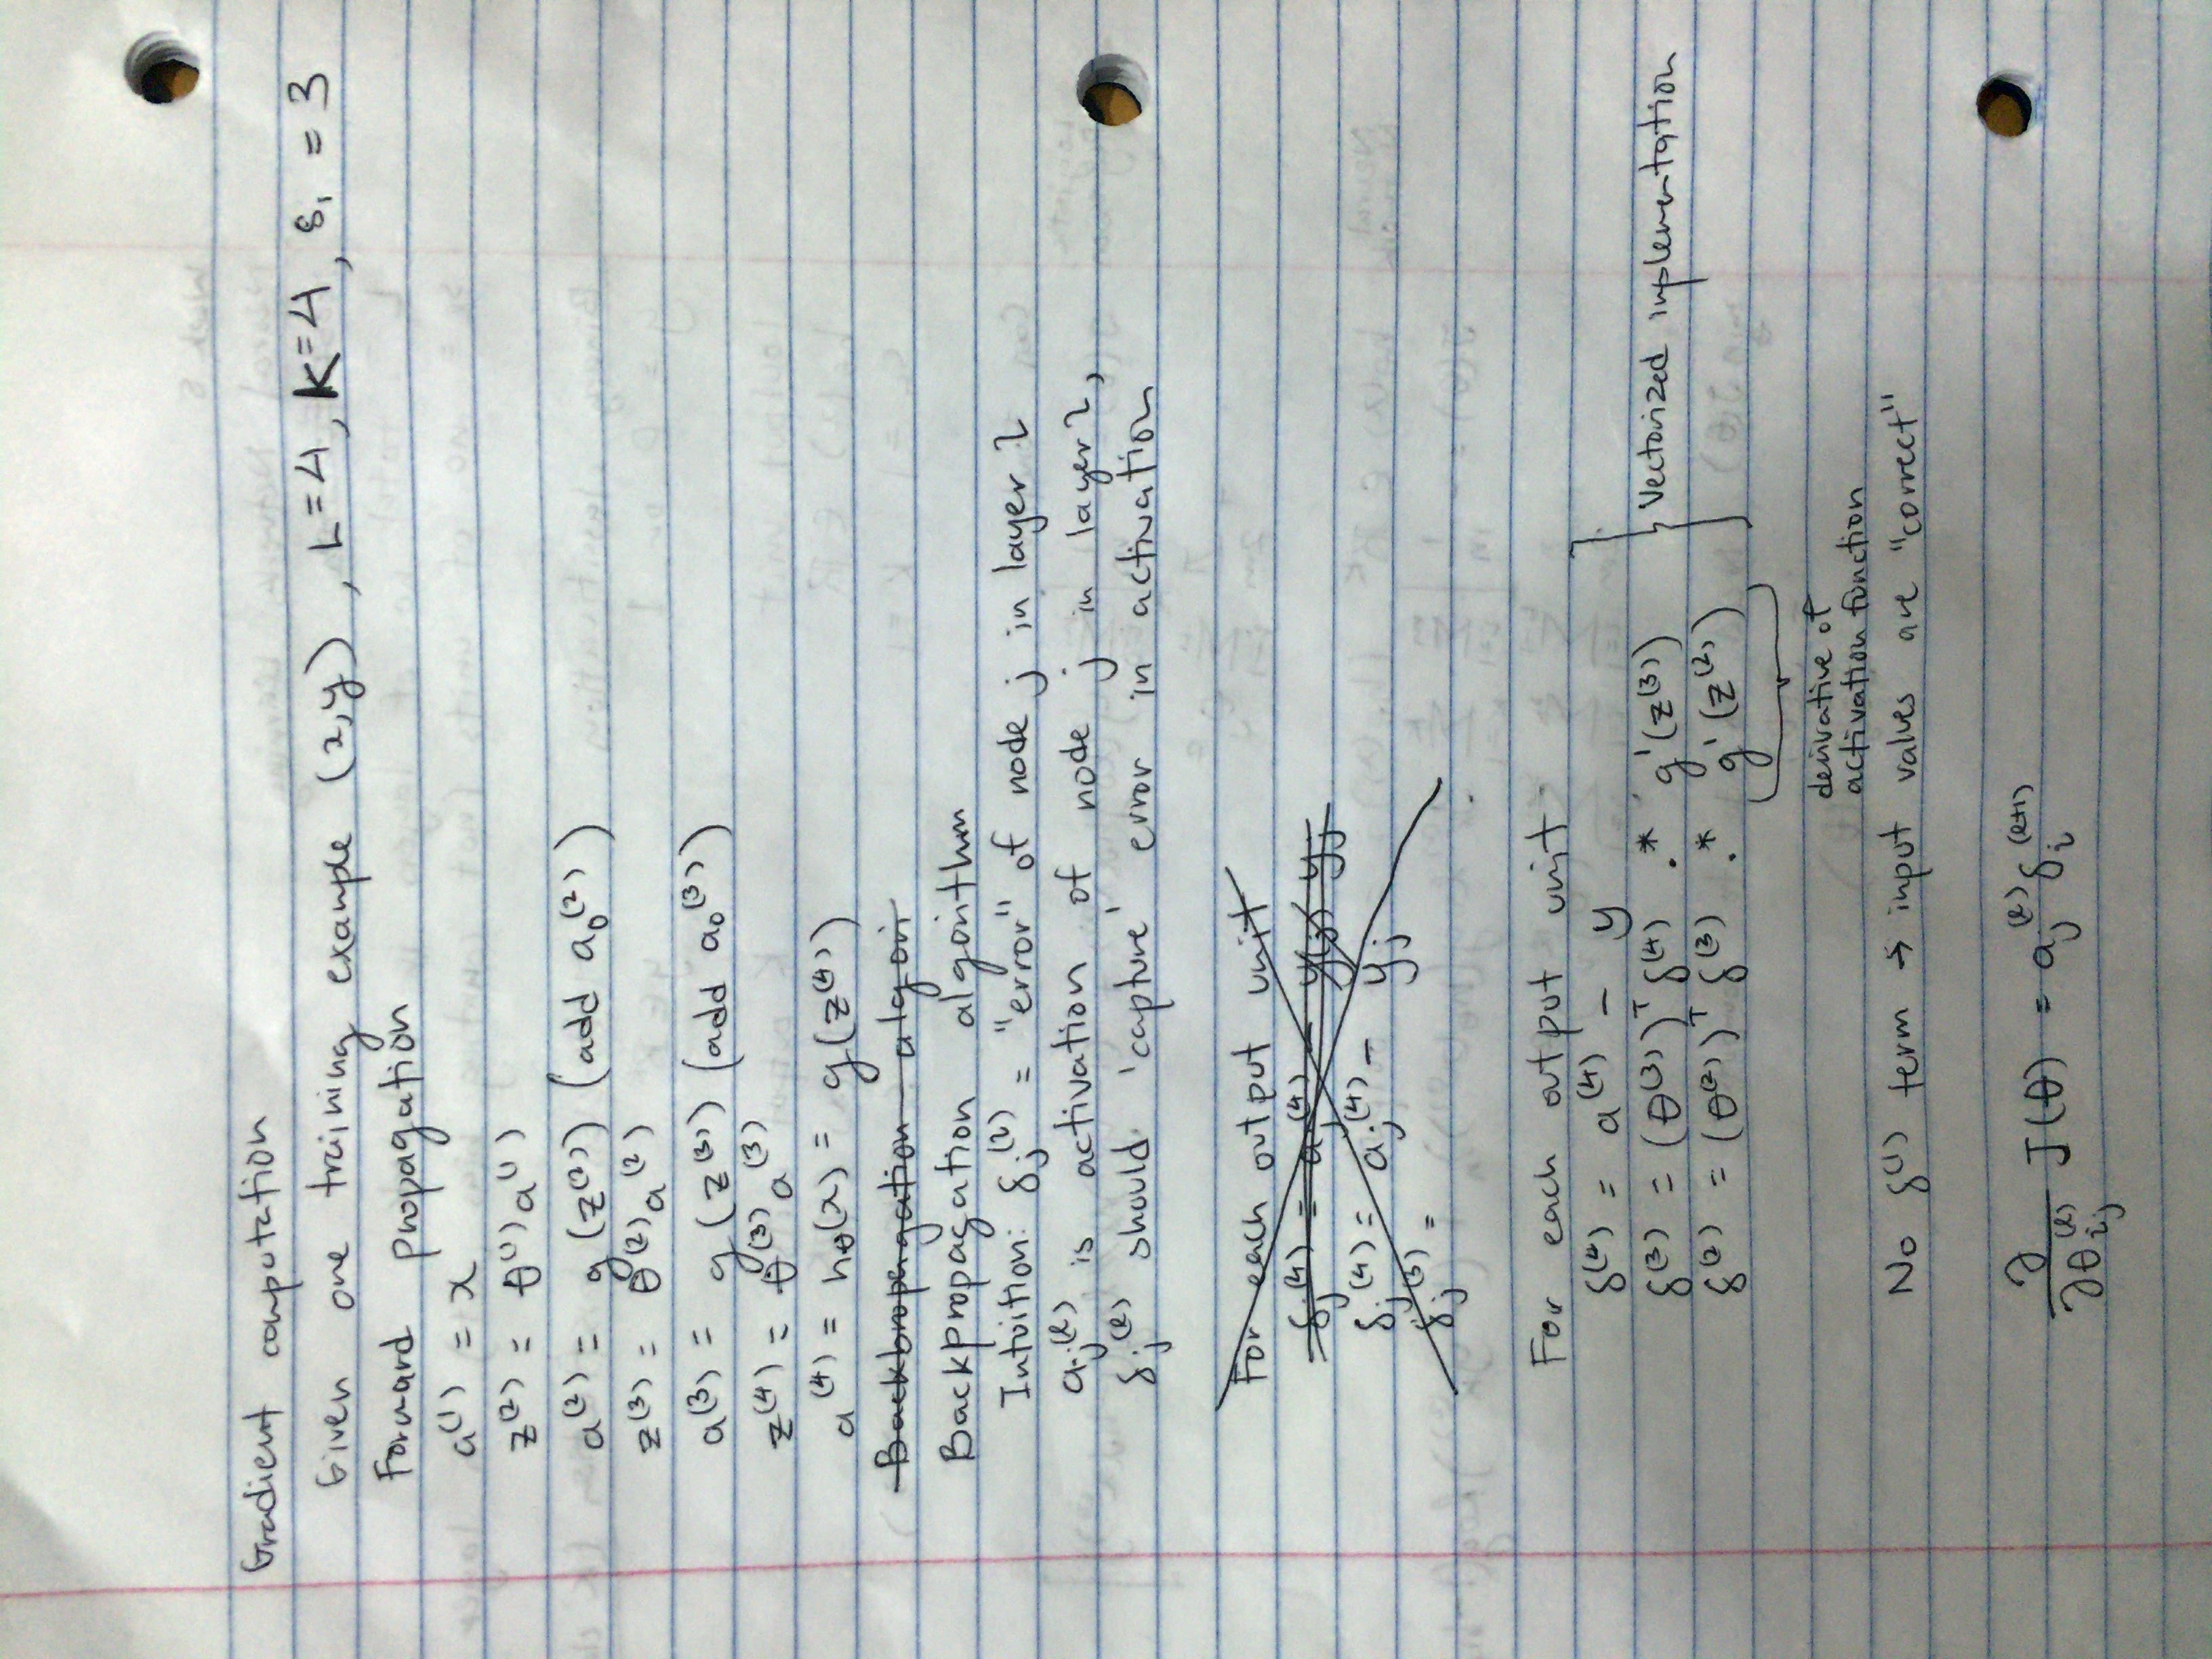 Gradient computation
Given one training example (x,y), L=4, K=4, s₁ = 3
Forward propagation
a⁽¹⁾ = x
z⁽²⁾ = θ⁽¹⁾a⁽¹⁾
a⁽²⁾ = g(z⁽²⁾) (add a₀⁽²⁾)
z⁽³⁾ = θ⁽²⁾a⁽²⁾
a⁽³⁾ = g(z⁽³⁾) (add a₀⁽³⁾)
z⁽⁴⁾ = θ⁽³⁾a⁽³⁾
a⁽⁴⁾ = hθ(x) = g(z⁽⁴⁾)
Backbropagation algori
Backpropagation algorithm
Intuition: δⱼ⁽ˡ⁾ = "error" of node j in layer l
aⱼ⁽ˡ⁾ is activation of node j in layer l,
δⱼ⁽ˡ⁾ should 'capture' error in activation
For each output unit
δⱼ⁽⁴⁾ = aⱼ⁽⁴⁾ − y(j) yⱼ
δⱼ⁽⁴⁾ = aⱼ⁽⁴⁾ − yⱼ
δⱼ⁽³⁾ =
For each output unit
δ⁽⁴⁾ = a⁽⁴⁾ − y
δ⁽³⁾ = (θ⁽³⁾)ᵀ δ⁽⁴⁾ .* g'(z⁽³⁾)
Vectorized implementation
δ⁽²⁾ = (θ⁽²⁾)ᵀ δ⁽³⁾ .* g'(z⁽²⁾)
derivative of
activation function
No δ⁽¹⁾ term → input values are "correct"
∂/∂θᵢⱼ⁽ˡ⁾ J(θ) = aⱼ⁽ˡ⁾ δᵢ⁽ˡ⁺¹⁾